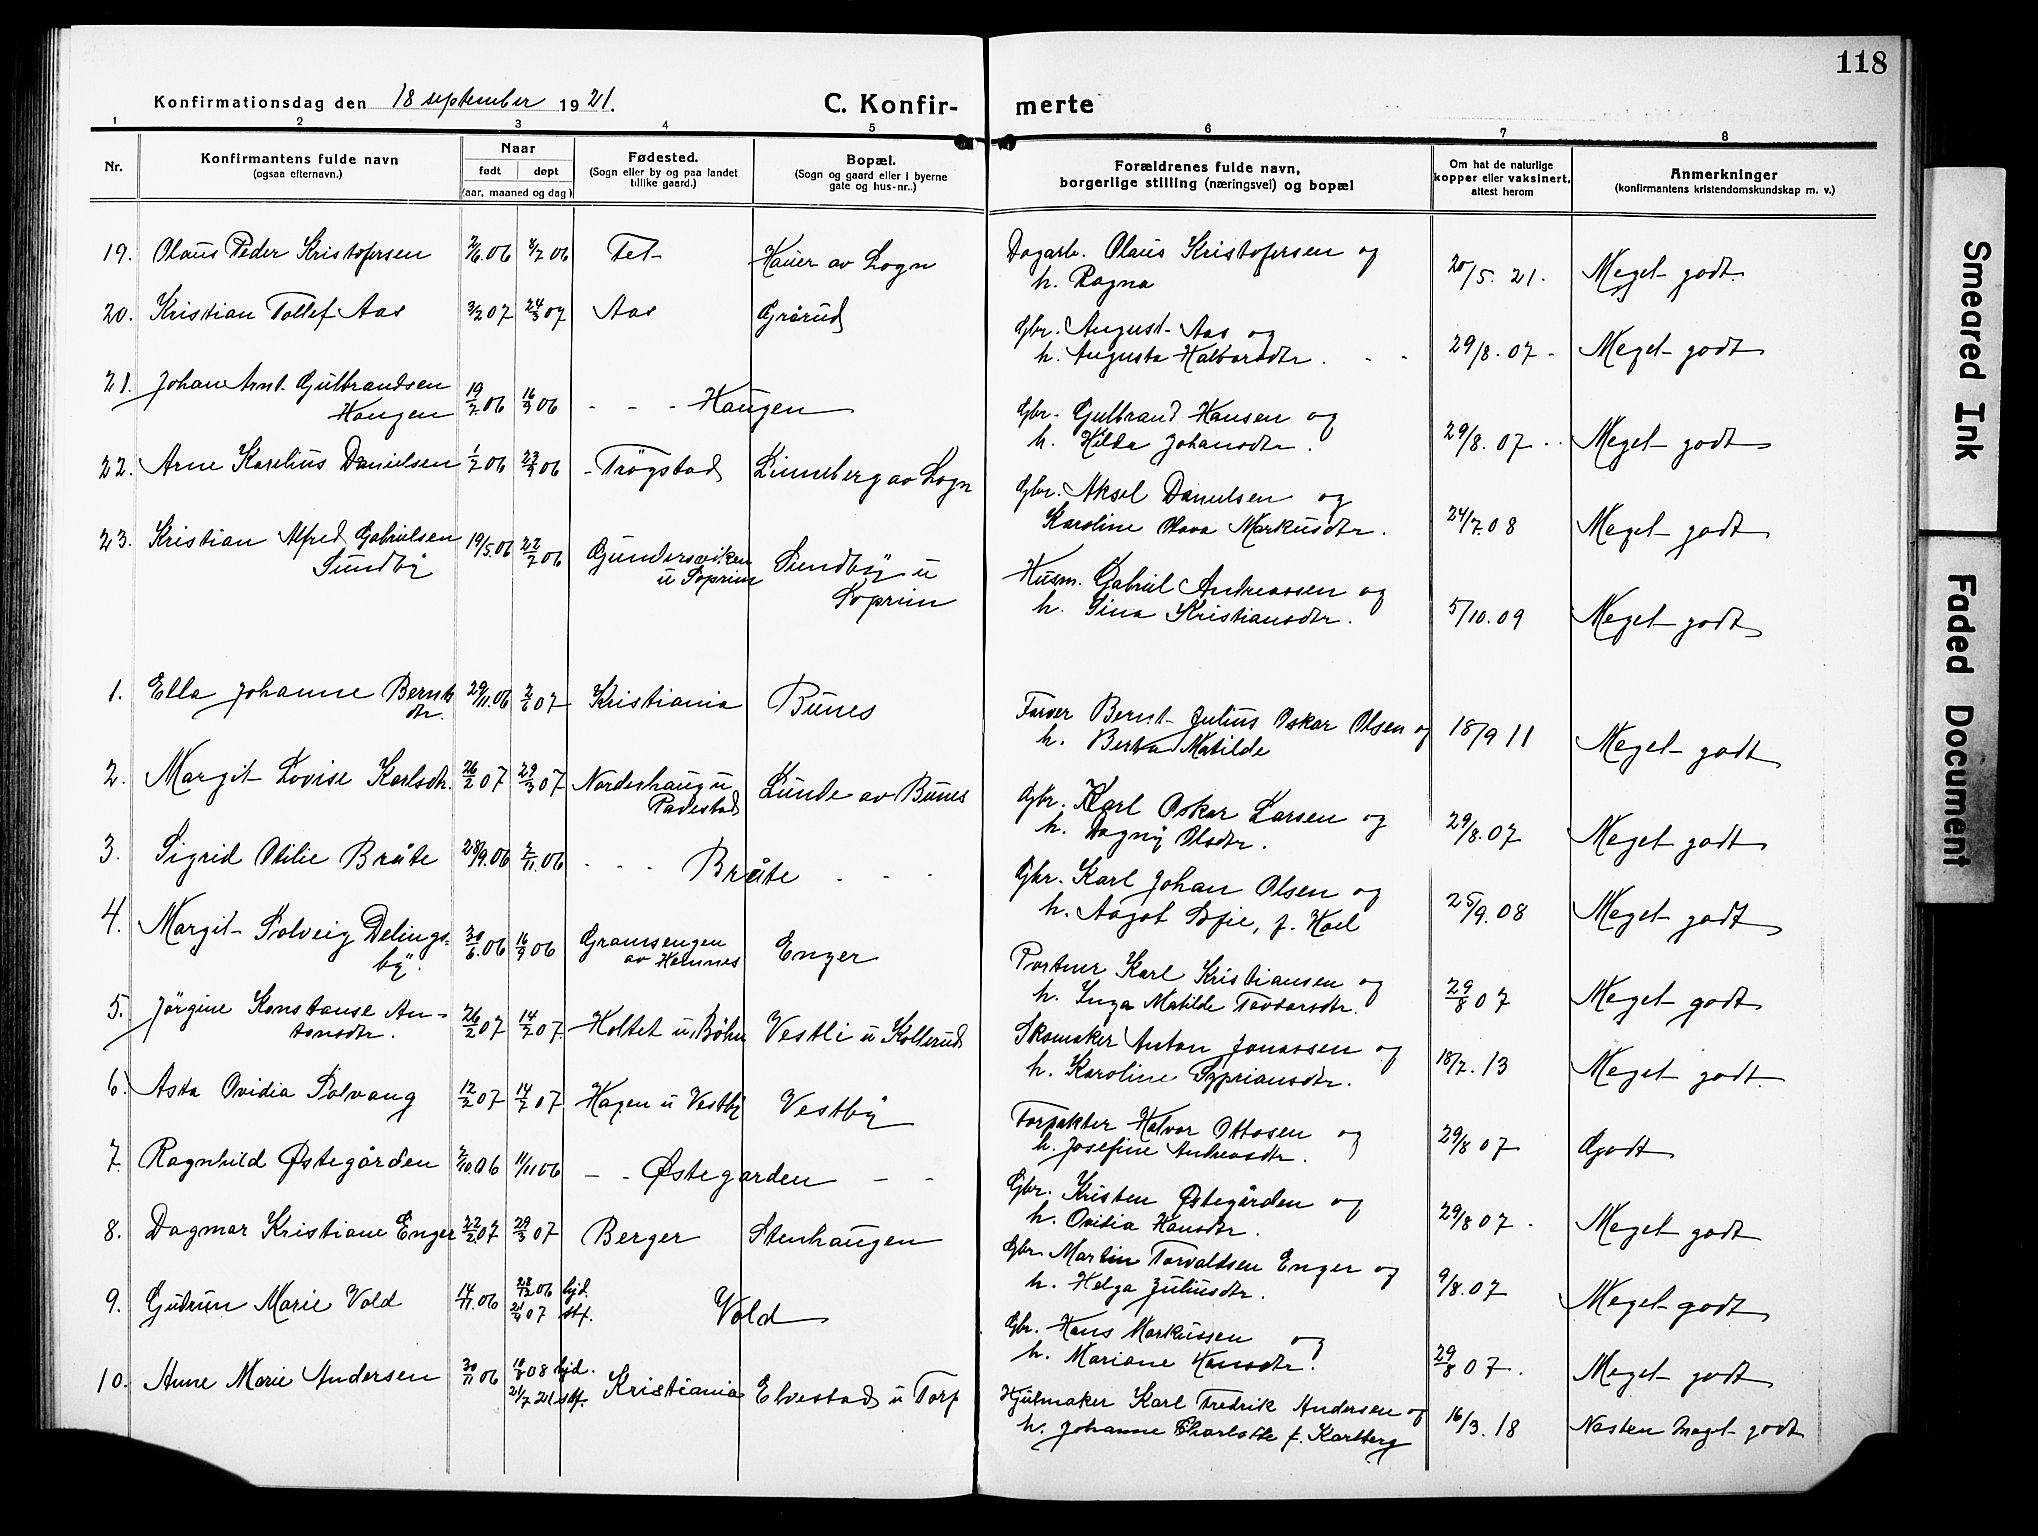 118
Konfirmationsdag den 18 september 1921.
C. Konfirmerte
1 2 3 4 5 6 7 8
Nr.
Konfirmantens fulde navn
(ogsaa efternavn.)
Naar
født døpt
(aar, maaned og dag)
Fødested.
(Sogn eller by og paa landet
tillike gaard.)
Bopæl.
(Sogn og gaard eller i byerne
gate og hus-nr..)
Forældrenes fulde navn,
borgerlige stilling (næringsvei) og bopæl
Om hat de naturlige
kopper eller vaksinert,
altest herom
Anmerkninger
(konfirmantens kristendomskundskap m. v.)
19. Olaus Peder Kristofersen 2/6.06 8/7 06 Fet Hauer av Sogn Dagarb. Olaus Kristofersen og
h. Ragna 20/5. 21. Meget godt.
20. Kristian Tollef Aas 3/2 07 24/3 07 Aas Grårud Gbr. August Aas og
h. Augusta Halvorsdtr. 29/8. 07 Meget godt
21. Johan Arnt Gulbrandsen
Haugen 19/7.06 16/9 06 Haugen Gbr. Gulbrand Hansen og
h. Hilda Johansdtr. 29/8. 07 Meget godt
22. Arne Karelius Danielsen 1/7 06 23/9 06 Trøgstad Linneberg av Sogn Gbr. Aksel Danielsen og
Karoline Olava Markusdtr. 24/7.08 Meget godt
23. Kristian Alfred Gabrielsen
Sundby 19/5.06 22/7 06 Gundersviken
u Soprim Sundby u
Soprim Husm. Gabriel Andreassen og
h. Sina Kristiansdtr. 5/10.09 Meget godt
1. Ella Johanne Bernts
dtr. 29/11.06 2/6 07 Kristiania Bunes Farver Bernt Julius Oskar Olsen og
h. Berta Matilde 18/9 11 Meget godt
2. Margit Lovise Karlsdtr. 26/2 07 29/3 07 Norderhaug u
Radestad Lunde av Bunes Gbr. Karl Oskar Larsen og
h. Dagny Olsdtr. 29/8.07 Meget godt
3. Sigrid Otilie Bråte 28/9.06 2/11.06 Bråte Gbr. Karl Johan Olsen og
h. Aagot Sofie, f. Hoel 25/9.08 Meget godt
4. Margit Solveig Delings-
by. 30/6.06 16/9 06 Gramsengen
av Hemnes Enger Portner Karl Kristiansen og
h. Inga Matilde Torvarsdtr. 29/8 07 Meget godt
5. Jørgine Konstanse An-
tonsdtr. 26/2 07 14/7 07. Holtet u. Bøhn Vestli u Kolterud Skomaker Anton Jonassen og
h. Karoline Sypriandtr. 18/7. 13 Meget godt
6. Asta Ovidia Solvang 12/2 07 14/7 07 Hagen u Vestby Vestby Forpakter Halvor Ottosen og
h. Josefine Andreasdtr. 29/8 07 Godt
7. Ragnhild Østegården 2/10.06 11/11 06 Østegarden Gbr. Kristen Østegården og
h. Ovidia Hansdtr. 29/8 07 Meget godt
8. Dagmar Kristiane Enger 22/2 07 29/3 07 Berger Stenhaugen Gbr. Martin Torvaldsen Enger og
h. Helga Juliusdtr. 9/8.07 Meget godt
9. Gudrun Marie Vold 14/11.06 28/12 06 hjd.
21/4 07 stf. Vold Gbr. Hans Markussen og
h. Mariane Hansdtr. 29/8 07. Meget godt
10. Anne Marie Andersen 30/11 06 10/8 08 hjd.
21/7 21 stf. Kristiania Elvestad u Torp Hjulmaker Karl Fredrik Andersen og
h. Johanne Charlotte f. Karlberg 16/3. 18 Næsten meget godt
Smeared Ink
Faded Document